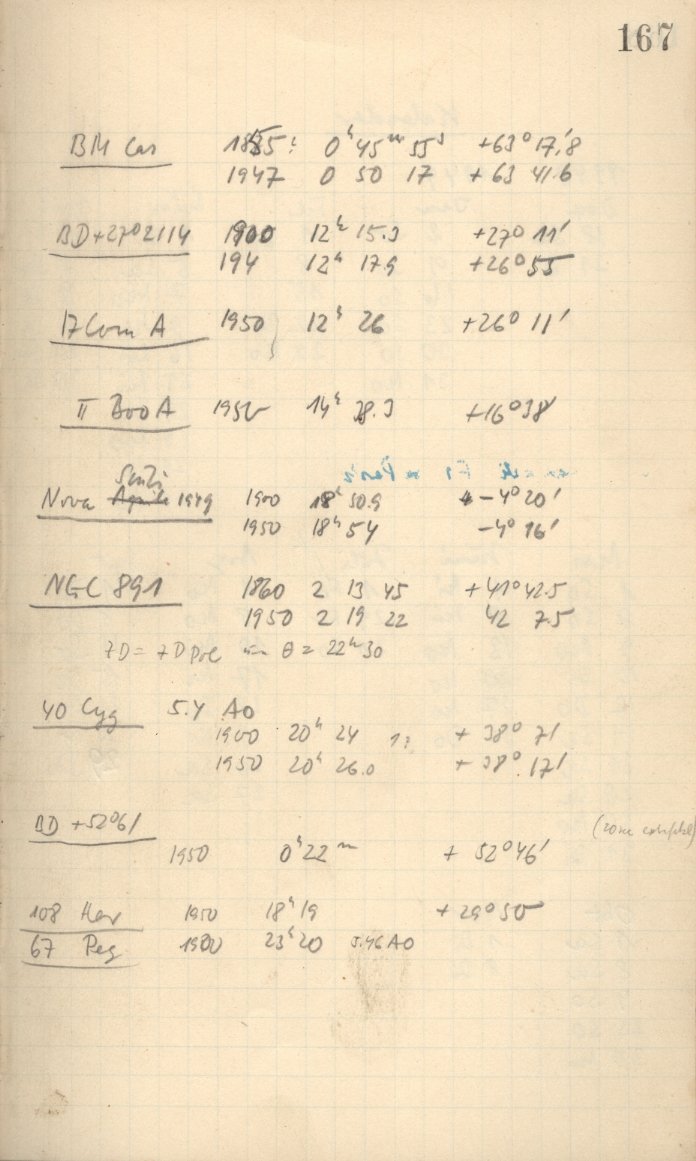 167
BM Cas 1855: 0ʰ 45ᵐ 55ˢ +63° 17,'8
1947 0 50 17 +63 41.6
BD+27°2114 1900 12ʰ 15.3 +27° 11'
194 12ʰ 17.9 +26° 55
17 Com A 1950 12ʰ 26 +26° 11'
π Boo A 1950 14ʰ 38.3 +16° 38'
Scuti
Nova 1949 1900 18ʰ 50.9 -4° 20'
1950 18ʰ 54 -4° 16'
NGC 891 1860 2 13 45 +41° 42.5
1950 2 19 22 42 7.5
7D = 7D Pol θ = 22ʰ 30
40 Cyg 5.4 A0
1900 20ʰ 24 + 38° 7'
1950 20ʰ 26.0 + 38° 17'
BD +52°61
(zone
1950 0ʰ 22ᵐ + 52° 46'
108 Her 1950 18ʰ 19 + 29° 50
67 Peg 1900 23ʰ 20 5.46 A0